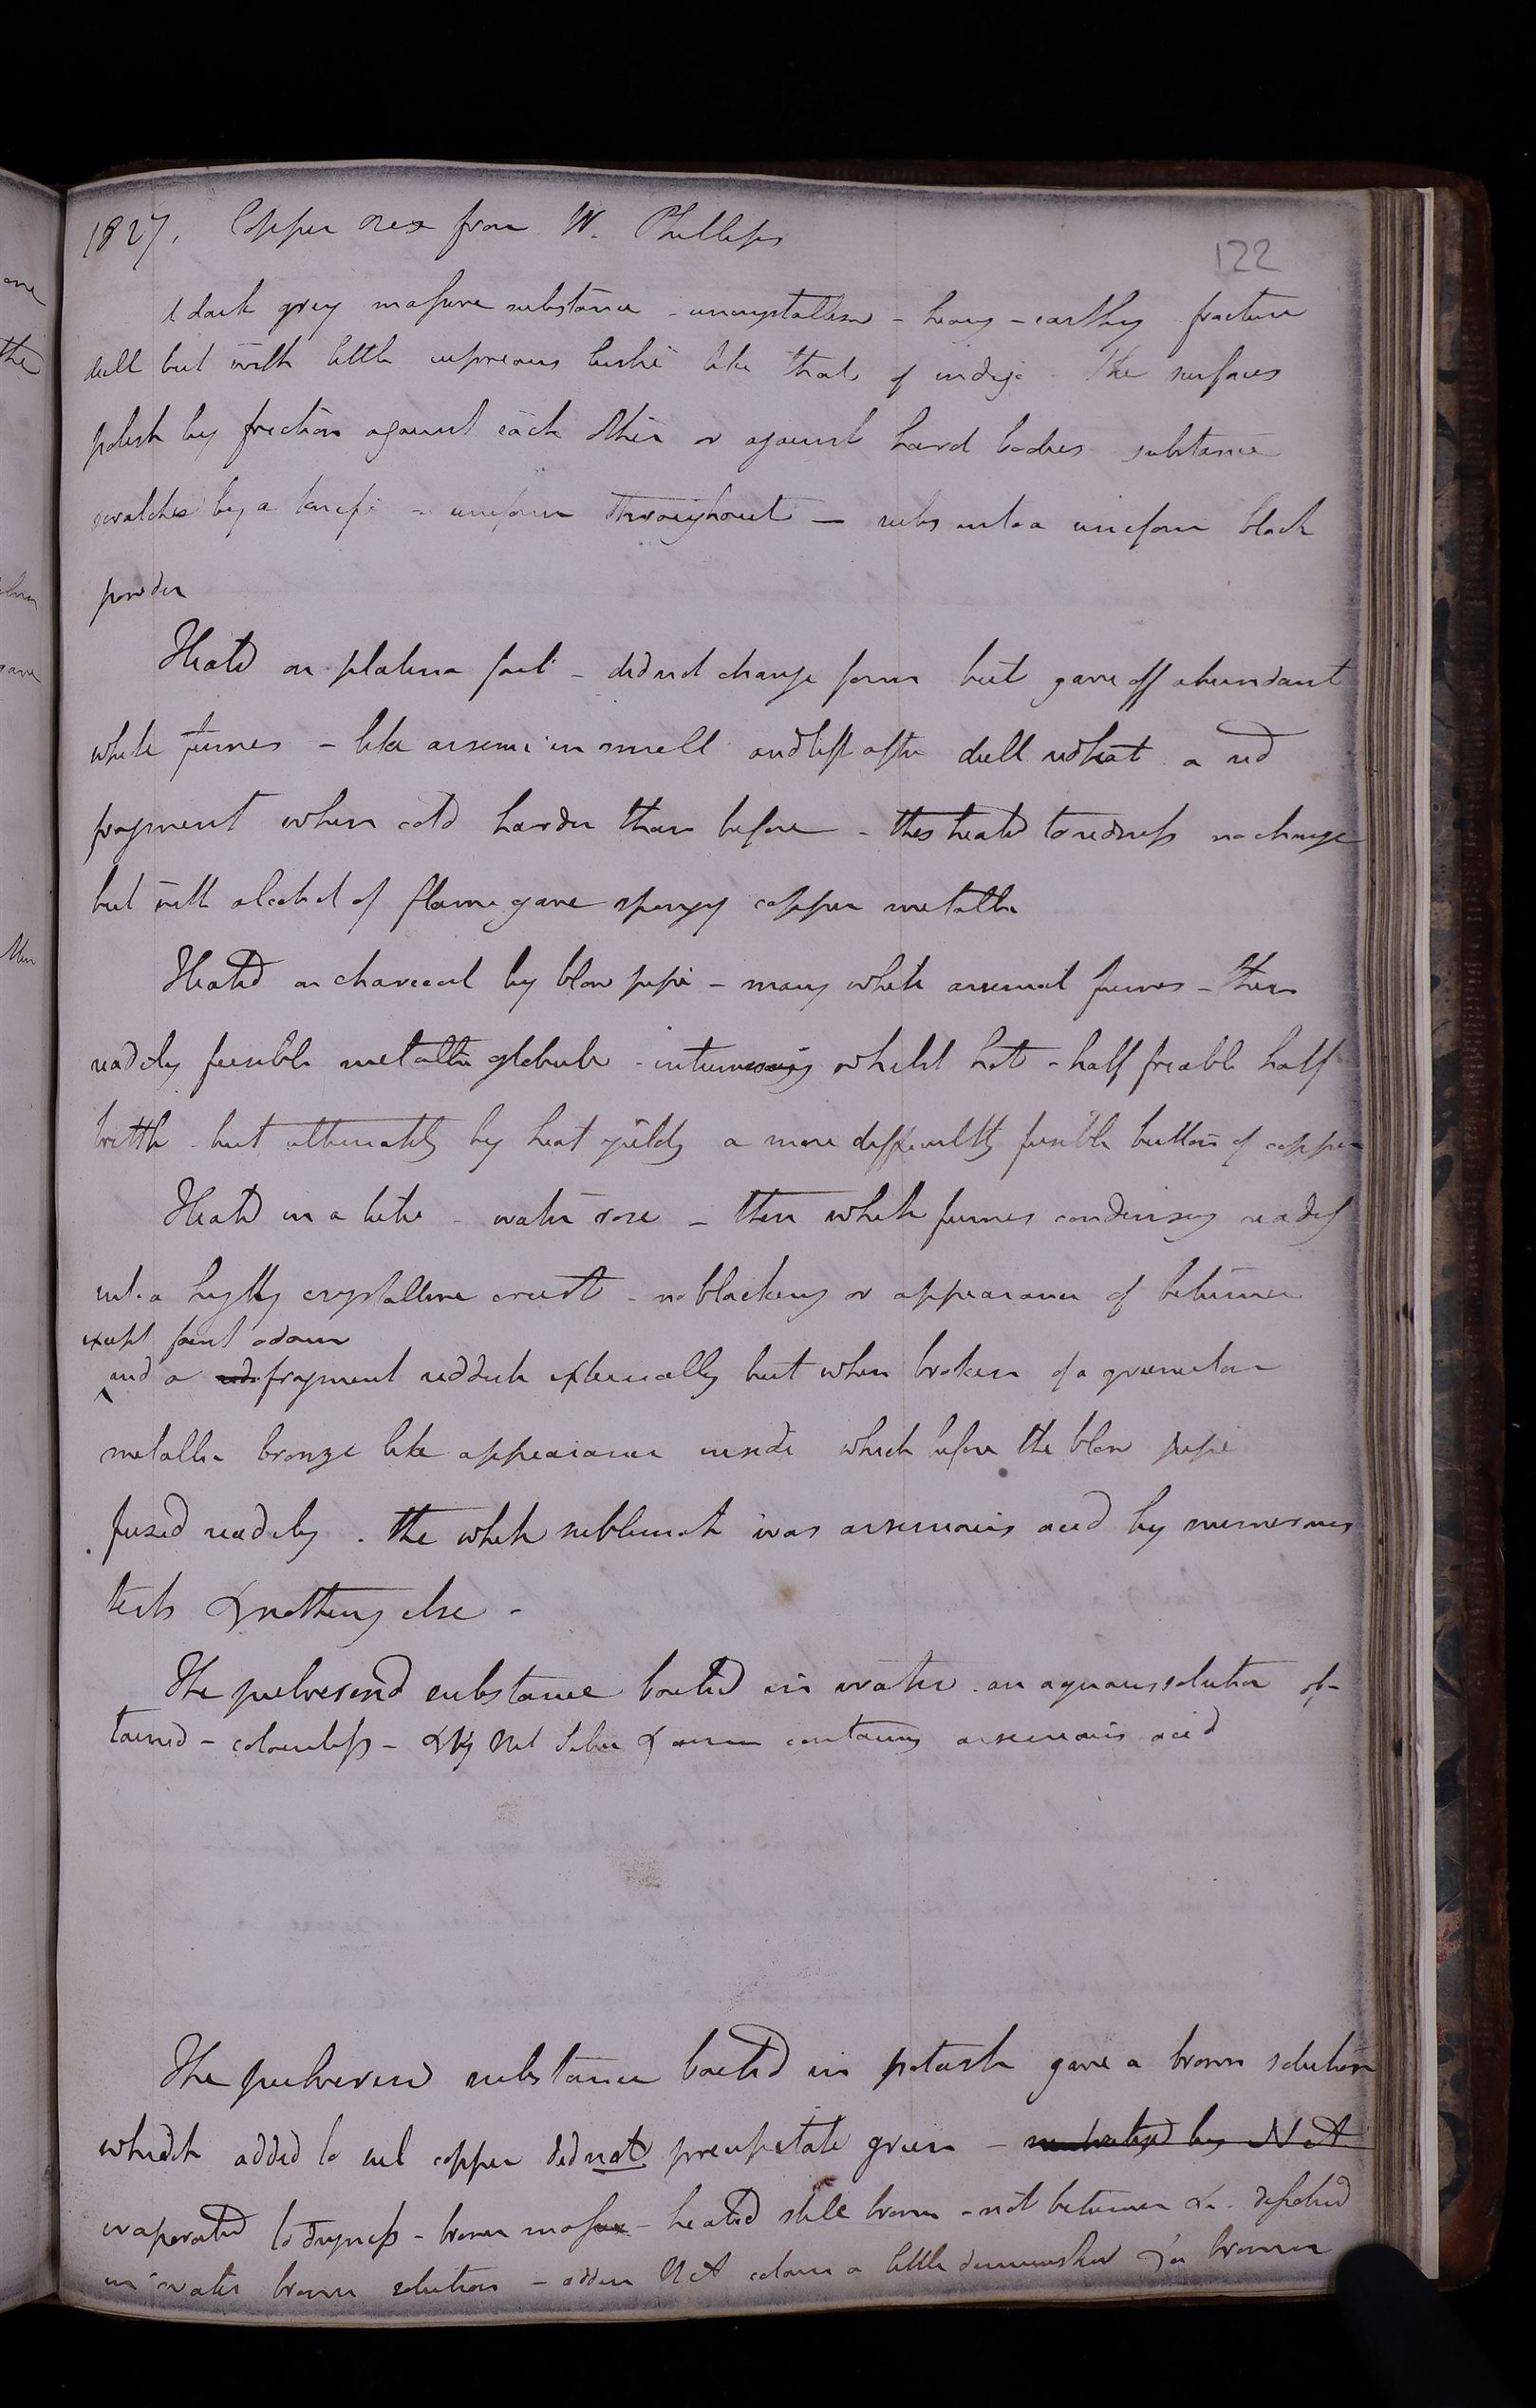 1827. Copper ores from W. Phillips
122
A dark grey massive substance - uncrystalline - heavy - earthy fracture
dull but with little cupreous lustre like that of indigo. The surfaces
polish by friction against each other or against hard bodies substance
scratches by a knife - uniform throughout — rubs into a uniform black
powder
Heated on platina foil - did not change form but gave off abundant
white fumes - like arsenic in smell and left after dull red heat a red
fragment when cold harder than before - this heated to redness no change
but with alcohol of flame gave spongy copper metallic
Heated on charcoal by blow pipe - many white arsenical fumes - then
readily fusible metallic globule - intumescing whilst hot - half friable half
brittle - but ultimately by heat yields a more difficultly fusible button of copper
Heated in a tube - water rose - then white fumes condensing readily
into a highly crystalline crust - no blackening or appearance of bitumen
except faint odour
and a red fragment reddish externally but when broken of a granular
metallic bronze like appearance inside which before the blow pipe
fused readily. The white sublimate was arsenious acid by numerous
tests & nothing else -
The pulverised substance boiled in water. an aqueous solution ob-
tained - colourless - & by Nit Silver & contains arsenious acid
The pulverised substance boiled in potash gave a brown solution
which added to sul copper did not precipitate green - neutralized by N A
evaporated to dryness - brown mass - heated still brown - not bitumen &c. dissolved
in water brown solution - added N A colour a little diminished brown